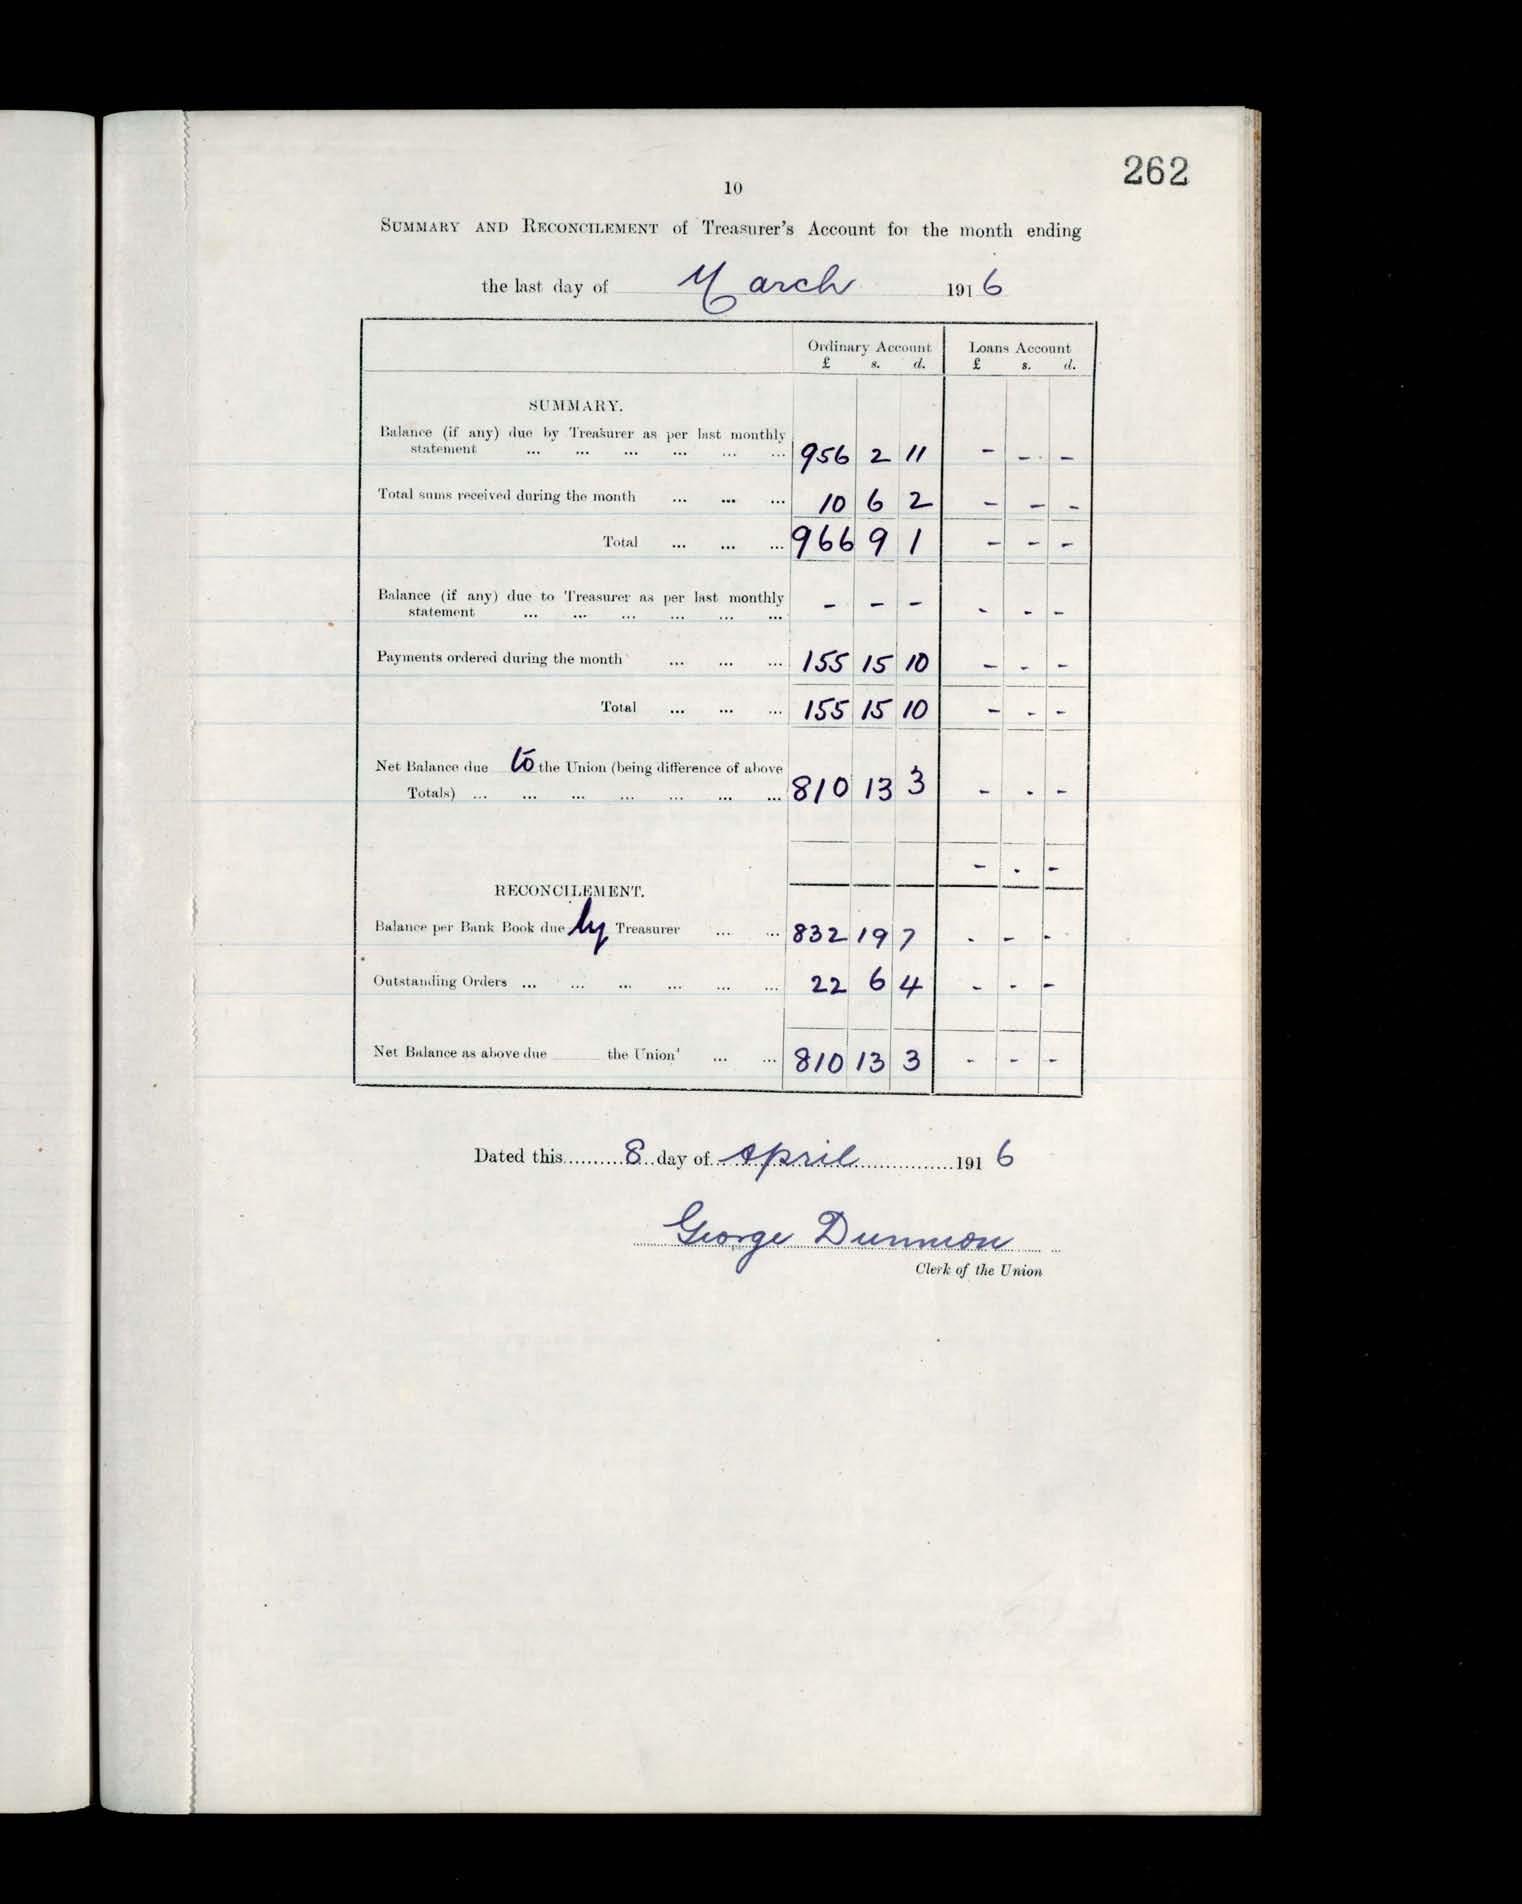 262
10
SUMMARY AND RECONCILEMENT of Treasurer's Account for the month ending
the last day of March 1916
Ordinary Account Loans Account
£ s. d. £ s. d.
SUMMARY.
Balance (if any) due by Treasurer as per last monthly
statement ... ... ... ... ... ... 956 2 11 - - -
Total sums received during the month ... ... ... 10 6 2 - - -
Total ... ... ... 966 9 1 - - -
Balance (if any) due to Treasurer as per last monthly
statement ... ... ... ... ... ... - - - - - -
Payments ordered during the month ... ... ... 155 15 10 - - -
Total ... ... ... 155 15 10 - - -
Net Balance due to the Union (being difference of above
Totals) ... ... ... ... ... ... ... 810 13 3 - - -
- - -
RECONCILEMENT.
Balance per Bank Book due by Treasurer ... ... 832 19 7 - - -
Outstanding Orders ... ... ... ... ... ... 22 6 4 - - -
Net Balance as above due the Union ... ... 810 13 3 - - -
Dated this 8 day of April 1916
George Dunnion
Clerk of the Union